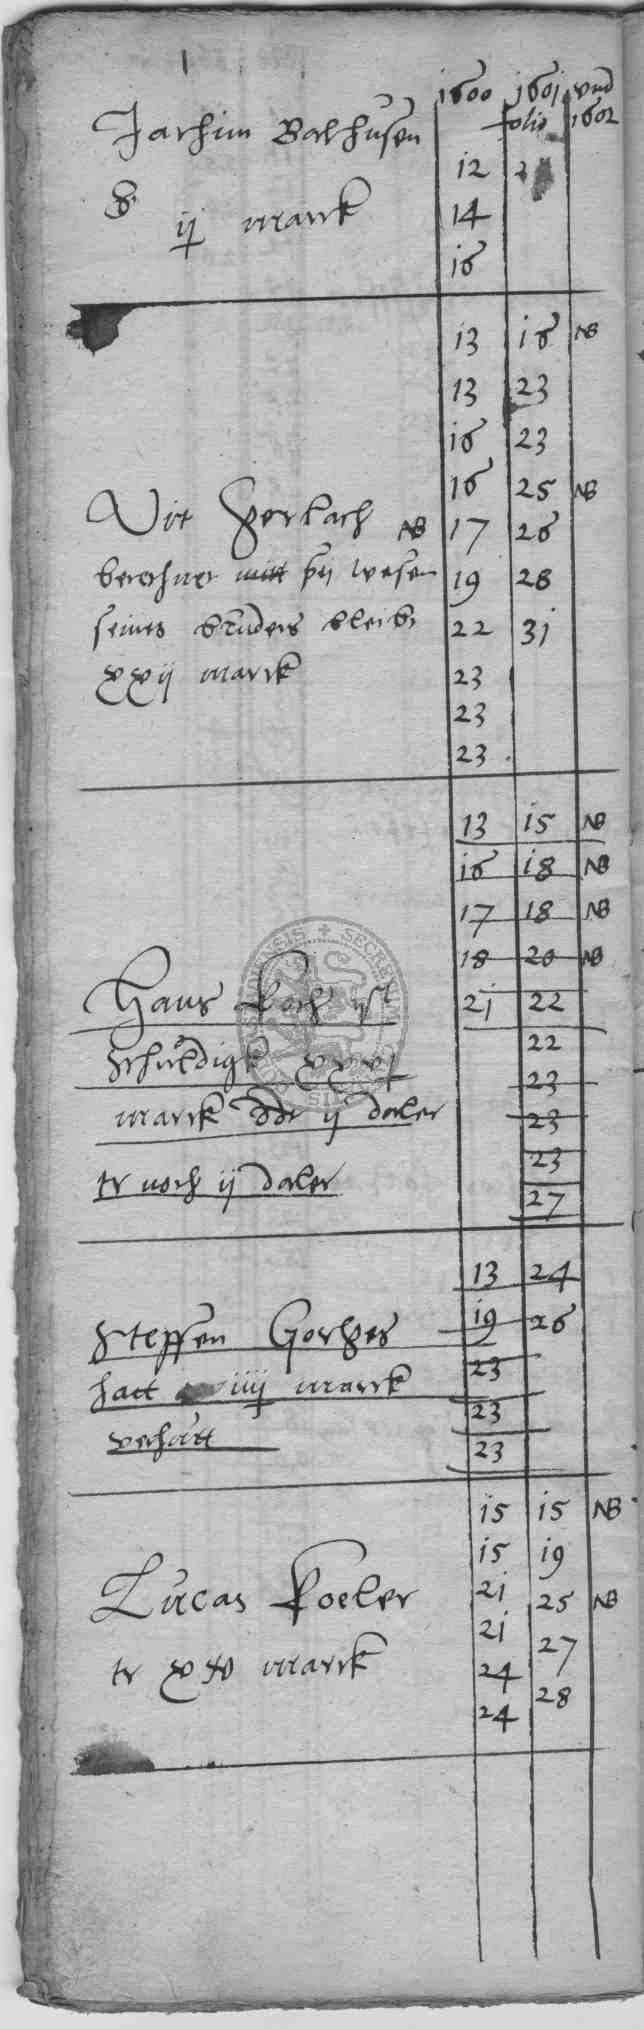 1600 1601 vnd
folio 1602
Jachim Balhusen
12 2
14
ij marck
16
13 16 NB
13 23
16 23
16 25 NB
Vit Gerlach NB 17 26
berechnet mitt bij wesen 19 28
seines bruders bleibt 22 31
xxij marck 23
23
23
13 15 NB
16 18 NB
17 18 NB
18 20 NB
Hans Koch ist 21 22
schuldigk xxxj 22
23
marck ij daler 23
23
tr noch ij daler 27
13 24
Steffen Gorges 19 26
hatt iiij marck 23
23
verhurtt 23
15 15 NB
15 19
Lucas Koeler 21 25 NB
21 27
tr xxv marck 24 28
24
SECRETUM